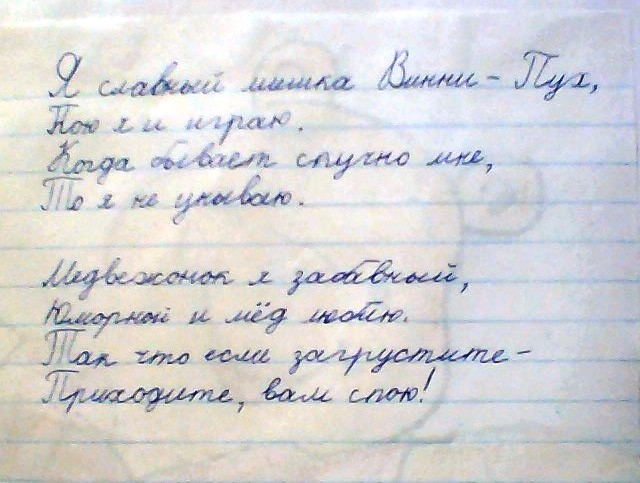 Я славный мишка Винни - Пух,
Пою я и играю.
Когда бывает скучно мне,
То я не унываю.
Медвежонок я забавный,
Юморной и мёд люблю.
Так что если загрустите -
Приходите, вам спою!